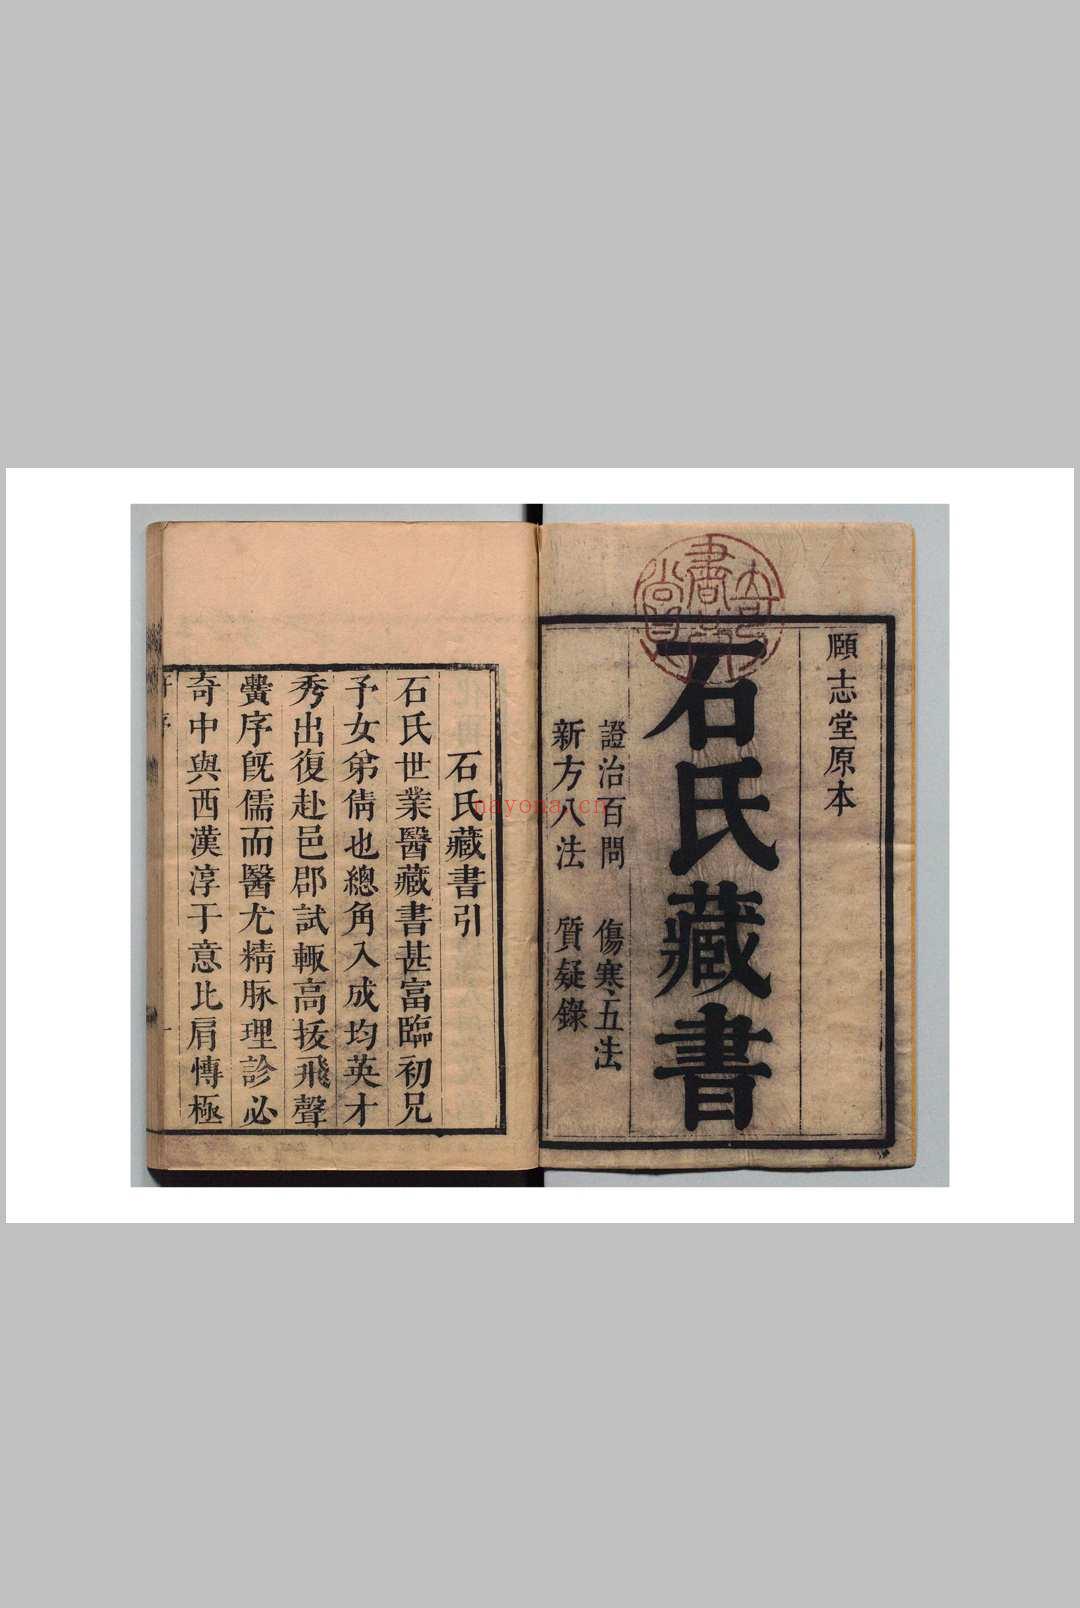 頤志堂原本
石氏藏書
證治百問 傷寒五法
新方八法 質疑錄
石氏藏書引
石氏世業醫藏書甚富臨初兄
予女弟倩也總角入成均英才
秀出復赴邑郡試輙高拔飛聲
黌序旣儒而醫尤精脉理診必
奇中與西漢淳于意比肩慱極